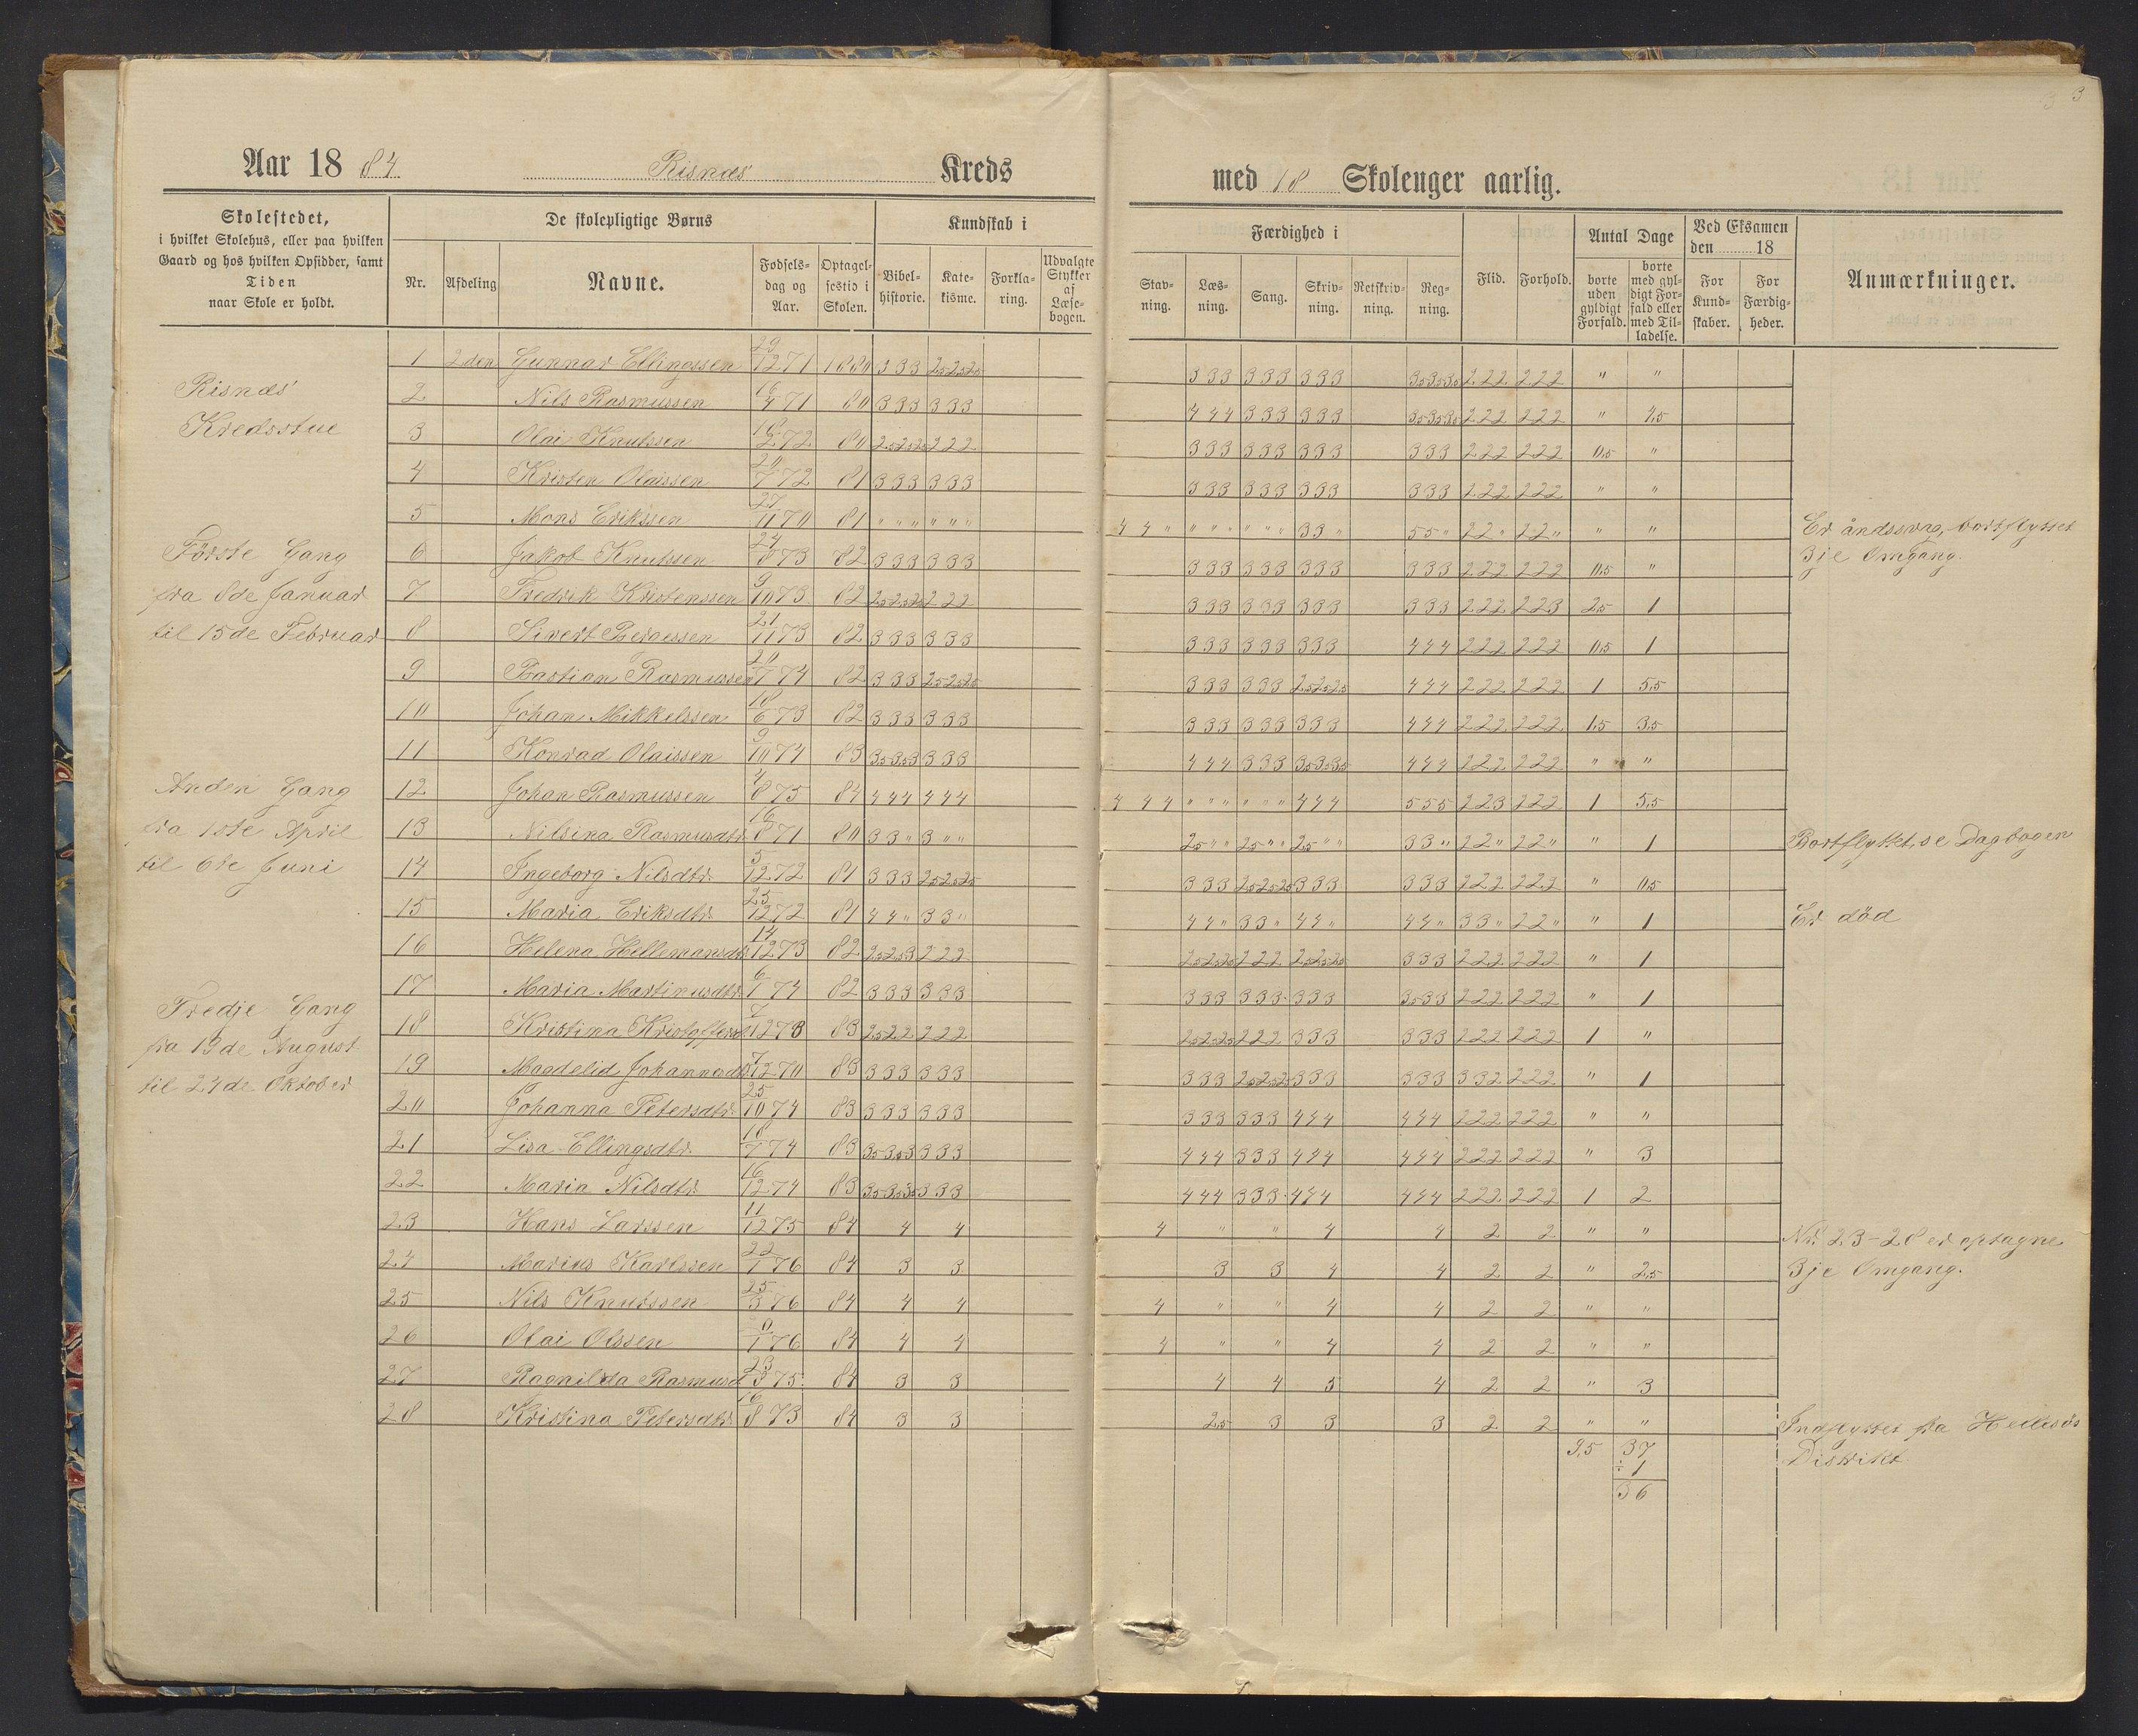 3
Aar 1884 Risnæs Kreds
med 18 Skoleuger aarlig.
Skolestedet,
i hvilket Skolehus, eller paa hvilken
Gaard og hos hvilken Opsidder, samt
Tiden
naar Skole er holdt.
De skolepligtige Børns
Nr. Afdeling Navne. Fødselsdag og Aar. Optagelsestid i Skolen.
Kundskab i
Bibelhistorie. Katekisme. Forklaring. Udvalgte Stykker af Læsebogen.
Færdighed i
Stavning. Læsning. Sang. Skrivning. Retskrivning. Regning.
Flid. Forhold.
Antal Dage
borte uden gyldigt Forfald. borte med gyldigt Forfald eller med Tilladelse.
Ved Eksamen den 18
For Kundskaber. For Færdigheder.
Anmærkninger.
Risnæs
Kredsstue
Første Gang
fra 8de Januar
til 15de Februar
Anden Gang
fra 1ste April
til 6te Juni
Tredje Gang
fra 13de August
til 24de Oktober
1 2den Gunnar Ellingssen 29/12 71 1880 3 3 3 2,5 2,5 2,5 3 3 3 3 3 3 3 3 3 3,5 3,5 3,5 2 2 2 2 2 2 " "
2 Nils Rasmussen 16/4 71 80 3 3 3 3 3 3 4 4 4 3 3 3 3 3 3 3,5 3,5 3,5 2 2 2 2 2 2 " 4,5
3 Olai Knutssen 16/2 72 80 2,5 2,5 2,5 2 2 2 3 3 3 3 3 3 3 3 3 3 3 3 2 2 2 2 2 2 0,5 "
4 Kristen Olaissen 20/7 72 81 3 3 3 3 3 3 3 3 3 3 3 3 3 3 3 3 3 3 2 2 2 2 2 2 " "
5 Mons Erikssen 27/11 70 81 " " " " " " 4 4 " " " " " " " 3 3 " 5 5 " 2 2 " 2 2 " " " Er åndssvag, bortflyttet
3je Omgang.
6 Jakob Knutssen 24/8 73 82 3 3 3 3 3 3 3 3 3 3 3 3 3 3 3 3 3 3 2 2 2 2 2 2 0,5 "
7 Fredrik Kristenssen 9/10 73 82 2,5 2,5 2,5 2 2 2 3 3 3 3 3 3 3 3 3 3 3 3 2 2 2 2 2 3 2,5 1
8 Sivert Børgessen 21/11 73 82 3 3 3 3 3 3 3 3 3 3 3 3 3 3 3 4 4 4 2 2 2 2 2 2 0,5 1
9 Bastian Rasmussen 20/1 74 82 3 3 3 2,5 2,5 2,5 3 3 3 3 3 3 2,5 2,5 2,5 4 4 4 2 2 2 2 2 2 1 5,5
10 Johan Mikkelssen 18/6 73 82 3 3 3 3 3 3 3 3 3 3 3 3 3 3 3 4 4 4 2 2 2 2 2 2 1,5 3,5
11 Konrad Olaissen 9/10 74 83 3,5 3,5 3 3 3 3 4 4 4 3 3 3 3,5 3,5 3,5 4 4 4 2 2 2 2 2 2 " "
12 Johan Rasmussen 4/8 75 84 4 4 4 4 4 4 4 4 4 " " " " " " 4 4 4 5 5 5 2 2 3 2 2 2 1 5,5
13 Nilsina Rasmusdtr. 16/8 71 80 3 3 " 3 " " 2,5 " " 2,5 " " 2,5 " " 3 3 " 2 2 " 2 2 " " 1 Bortflyttet, se Dagbogen
14 Ingeborg Nilsdtr. 5/12 72 81 3 3 3 2,5 2,5 2,5 3 3 3 2,5 2,5 2,5 3 3 3 3 3 3 2 2 2 2 2 2 " 0,5
15 Maria Eriksdtr. 25/12 72 81 4 4 " 3 3 " 4 4 " 3 3 " 4 4 " 4 4 " 3 3 " 2 2 " " 1 Er død
16 Helena Hellemansdtr 14/12 73 82 2,5 2,5 3 2 2 2 2,5 2,5 2,5 2 2 2 2,5 2,5 2,5 3 3 3 2 2 2 2 2 2 " 1
17 Maria Martinusdtr. 6/1 74 82 3 3 3 3 3 3 3 3 3 3 3 3 3 3 3 3,5 3 3 2 2 2 2 2 2 " 1
18 Kristina Kristoffersd. 7/12 73 83 2,5 2 2 2 2 2 2,5 2,5 2,5 2 2 2 3 3 3 3 3 3 2 2 2 2 2 2 1 "
19 Magdelid Johannesdtr. 7/12 70 83 3 3 3 3 3 3 3 3 3 2,5 2,5 2,5 3 3 3 3 3 3 3 3 2 2 2 2 " 1
20 Johanna Petersdtr. 25/10 74 83 3 3 3 3 3 3 3 3 3 3 3 3 4 4 4 4 4 4 2 2 2 2 2 2 " "
21 Lisa Ellingsdtr. 18/7 74 83 3,5 3,5 3 3 3 3 4 4 4 3 3 3 4 4 4 4 4 4 2 2 2 2 2 2 " 3
22 Maria Nilsdtr. 16/12 74 83 3,5 3,5 3,5 3 3 3 4 4 4 3 3 3 4 4 4 4 4 4 2 2 2 2 2 2 1 2
23 Hans Larssen 11/12 75 84 4 4 4 " " 4 4 2 2 " " Nr. 23-28 er optagne
24 Marius Karlssen 22/1 76 84 3 3 3 3 4 4 2 2 " 2,5 3je Omgang.
25 Nils Knutssen 25/3 76 84 4 4 4 " " 4 4 2 2 " "
26 Olai Olssen 8/1 76 84 4 4 4 " " 4 4 2 2 " "
27 Ragnilda Rasmusd 23/3 75 84 3 3 4 4 3 4 2 2 " 3
28 Kristina Petersdtr. 16/8 73 84 3 3 2,5 3 3 3 2 2 " " Indflyttet fra
Distrikt
9,5 37
÷ 1
36